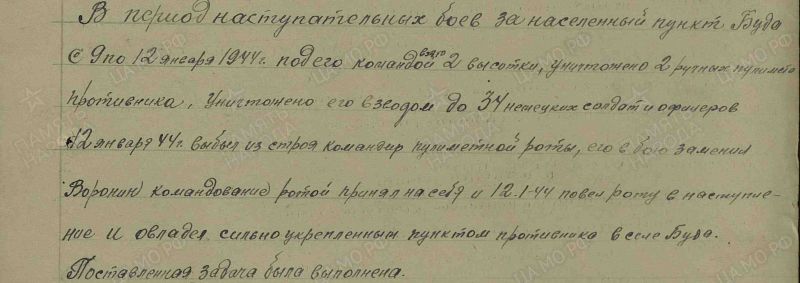 В период наступательных боев за населенный пункт Буда
с 9 по 12 января 1944 г. под его командой взято 2 высотки, уничтожено 2 ручных пулимета
противника, уничтожено его взводом до 34 немецких солдат и офицеров
12 января 44 г. выбыл из строя командир пулиметной роты, его в бою заменил
Воронин командование ротой принял на себя и 12.1.44 повел роту в наступле-
ние и овладел сильно укрепленным пунктом противника в селе Буда.
Поставленная задача была выполнена.